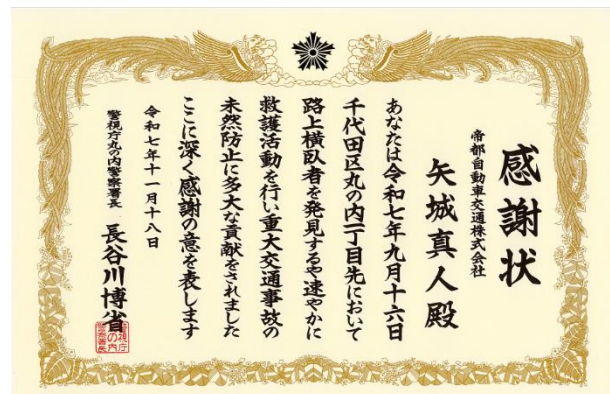 感謝状
帝都自動車交通株式会社
矢城真人殿
あなたは令和七年九月十六日
千代田区丸の内一丁目先において
路上横臥者を発見するや速やかに
救護活動を行い重大交通事故の
未然防止に多大な貢献をされました
ここに深く感謝の意を表します
令和七年十一月十八日
警視庁丸の内警察署長
長谷川博省
警視庁
丸の内
警察署長